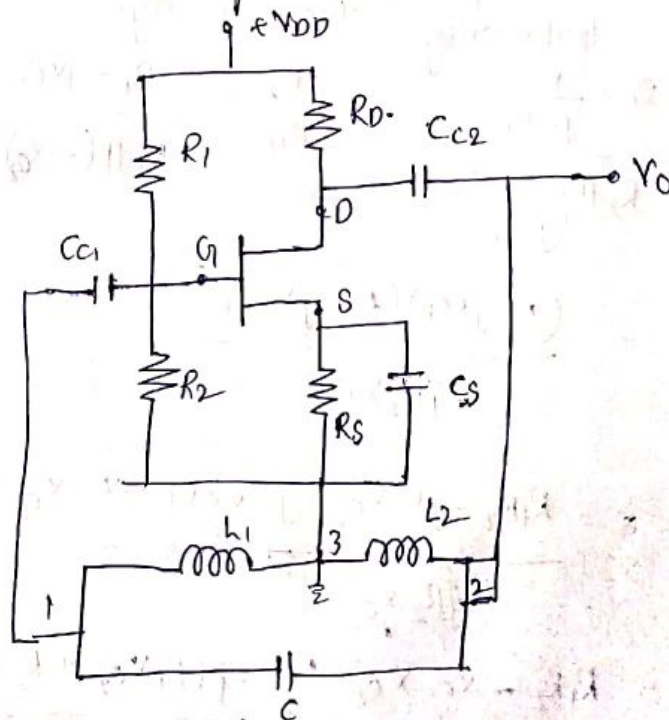 +VDD
RD.
R1
CC2
Vo
D
CC1
G
S
R2
RS
CS
L1
3
L2
1
2
C